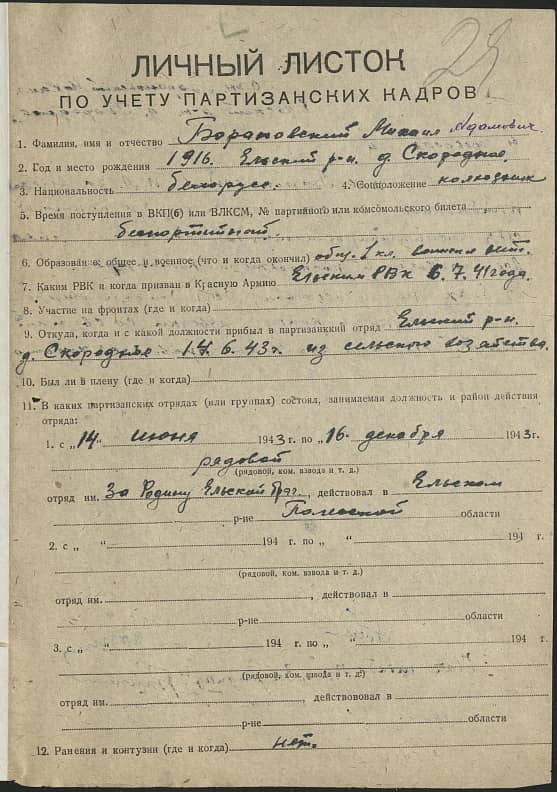 29
ЛИЧНЫЙ ЛИСТОК
ПО УЧЕТУ ПАРТИЗАНСКИХ КАДРОВ
1. Фамилия, имя и отчество Барановский Михаил Адамович.
2. Год и место рождения 1916. Ельский р-н. д. Скородное.
3. Национальность белорусс. 4. Соцположение колхозник
5. Время поступления в ВКП(б) или ВЛКСМ, № партийного или комсомольского билета
беспартийный.
6. Образование общее и военное (что и когда окончил) общ. 1 кл. военная нет.
7. Каким РВК и когда призван в Красную Армию Ельским РВК 6.7.41 года.
8. Участие на фронтах (где и когда)
9. Откуда, когда и с какой должности прибыл в партизанский отряд Ельский р-н.
д. Скородное 14.6.43г. из сельского хозяйства.
10. Был ли в плену (где и когда)
11. В каких партизанских отрядах (или группах) состоял, занимаемая должность и район действия
отряда:
1. с „14" июня 1943 г. по „16" декабря 1943 г.
рядовой
(рядовой, ком. взвода и т. д.)
отряд им. За Родину Ельской Бриг., действовал в Ельском
р-не Полесской области
2. с „ “ 194 г. по „ “ 194 г.
(рядовой, ком. взвода и т. д.)
отряд им. , действовал в
р-не области
3. с „ “ 194 г. по „ “ 194 г.
(рядовой, ком. взвода и т. д.)
отряд им. , действовал в
р-не области
12. Ранения и контузии (где и когда) нет.